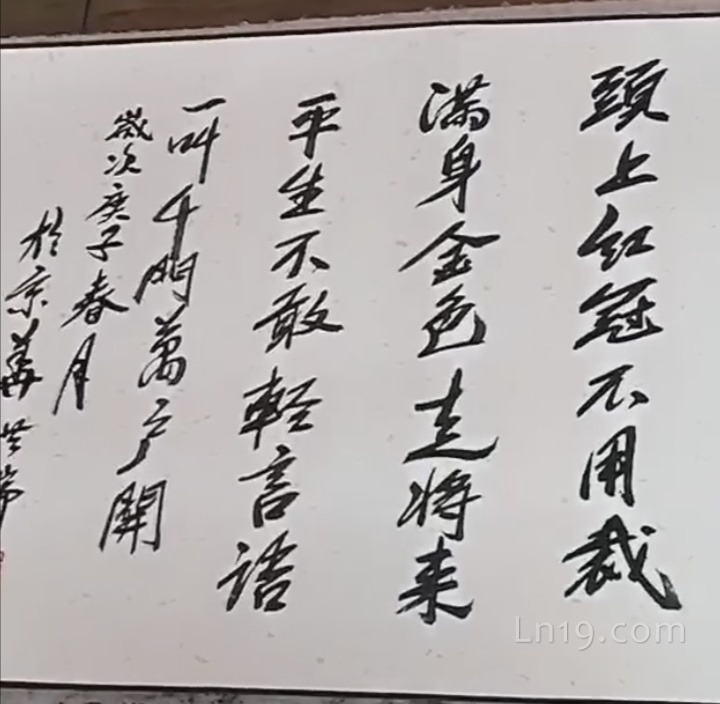 頭上红冠不用裁
满身金色走将来
平生不敢輕言语
一叫千門萬户開
歲次庚子春月
於京
Ln19.com